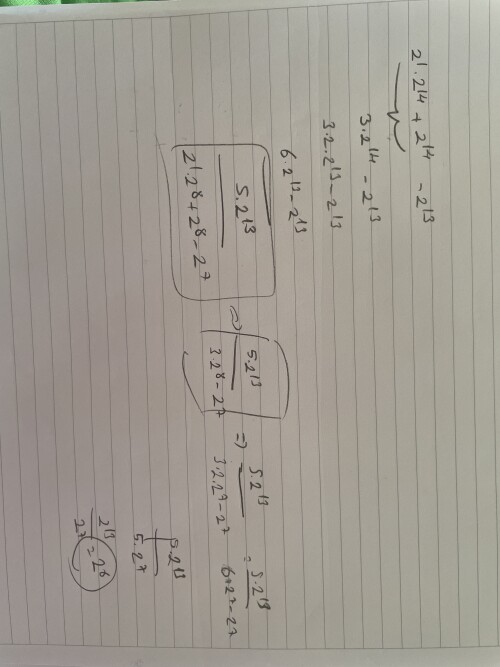 2¹.2¹⁴ + 2¹⁴ - 2¹³
3.2¹⁴ - 2¹³
3.2.2¹³ - 2¹³
6.2¹³ - 2¹³
5.2¹³ / 2¹.2⁸ + 2⁸ - 2⁷ => 5.2¹³ / 3.2⁸ - 2⁷ => 5.2¹³ / 3.2.2⁷ - 2⁷ = 5.2¹³ / 6.2⁷ - 2⁷
5.2¹³ / 5.2⁷
2¹³ / 2⁷ = 2⁶